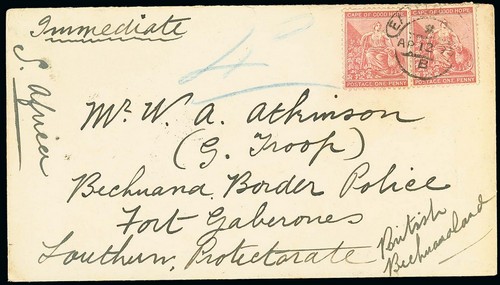 Immediate
S. Africa
CAPE OF GOOD HOPE
POSTAGE ONE PENNY
CAPE OF GOOD HOPE
POSTAGE ONE PENNY
AP 12
Mr. W. A. Atkinson
(G. Troop)
Bechuana Border Police
Fort Gaberones
Southern Protectorate
British
Bechuanaland